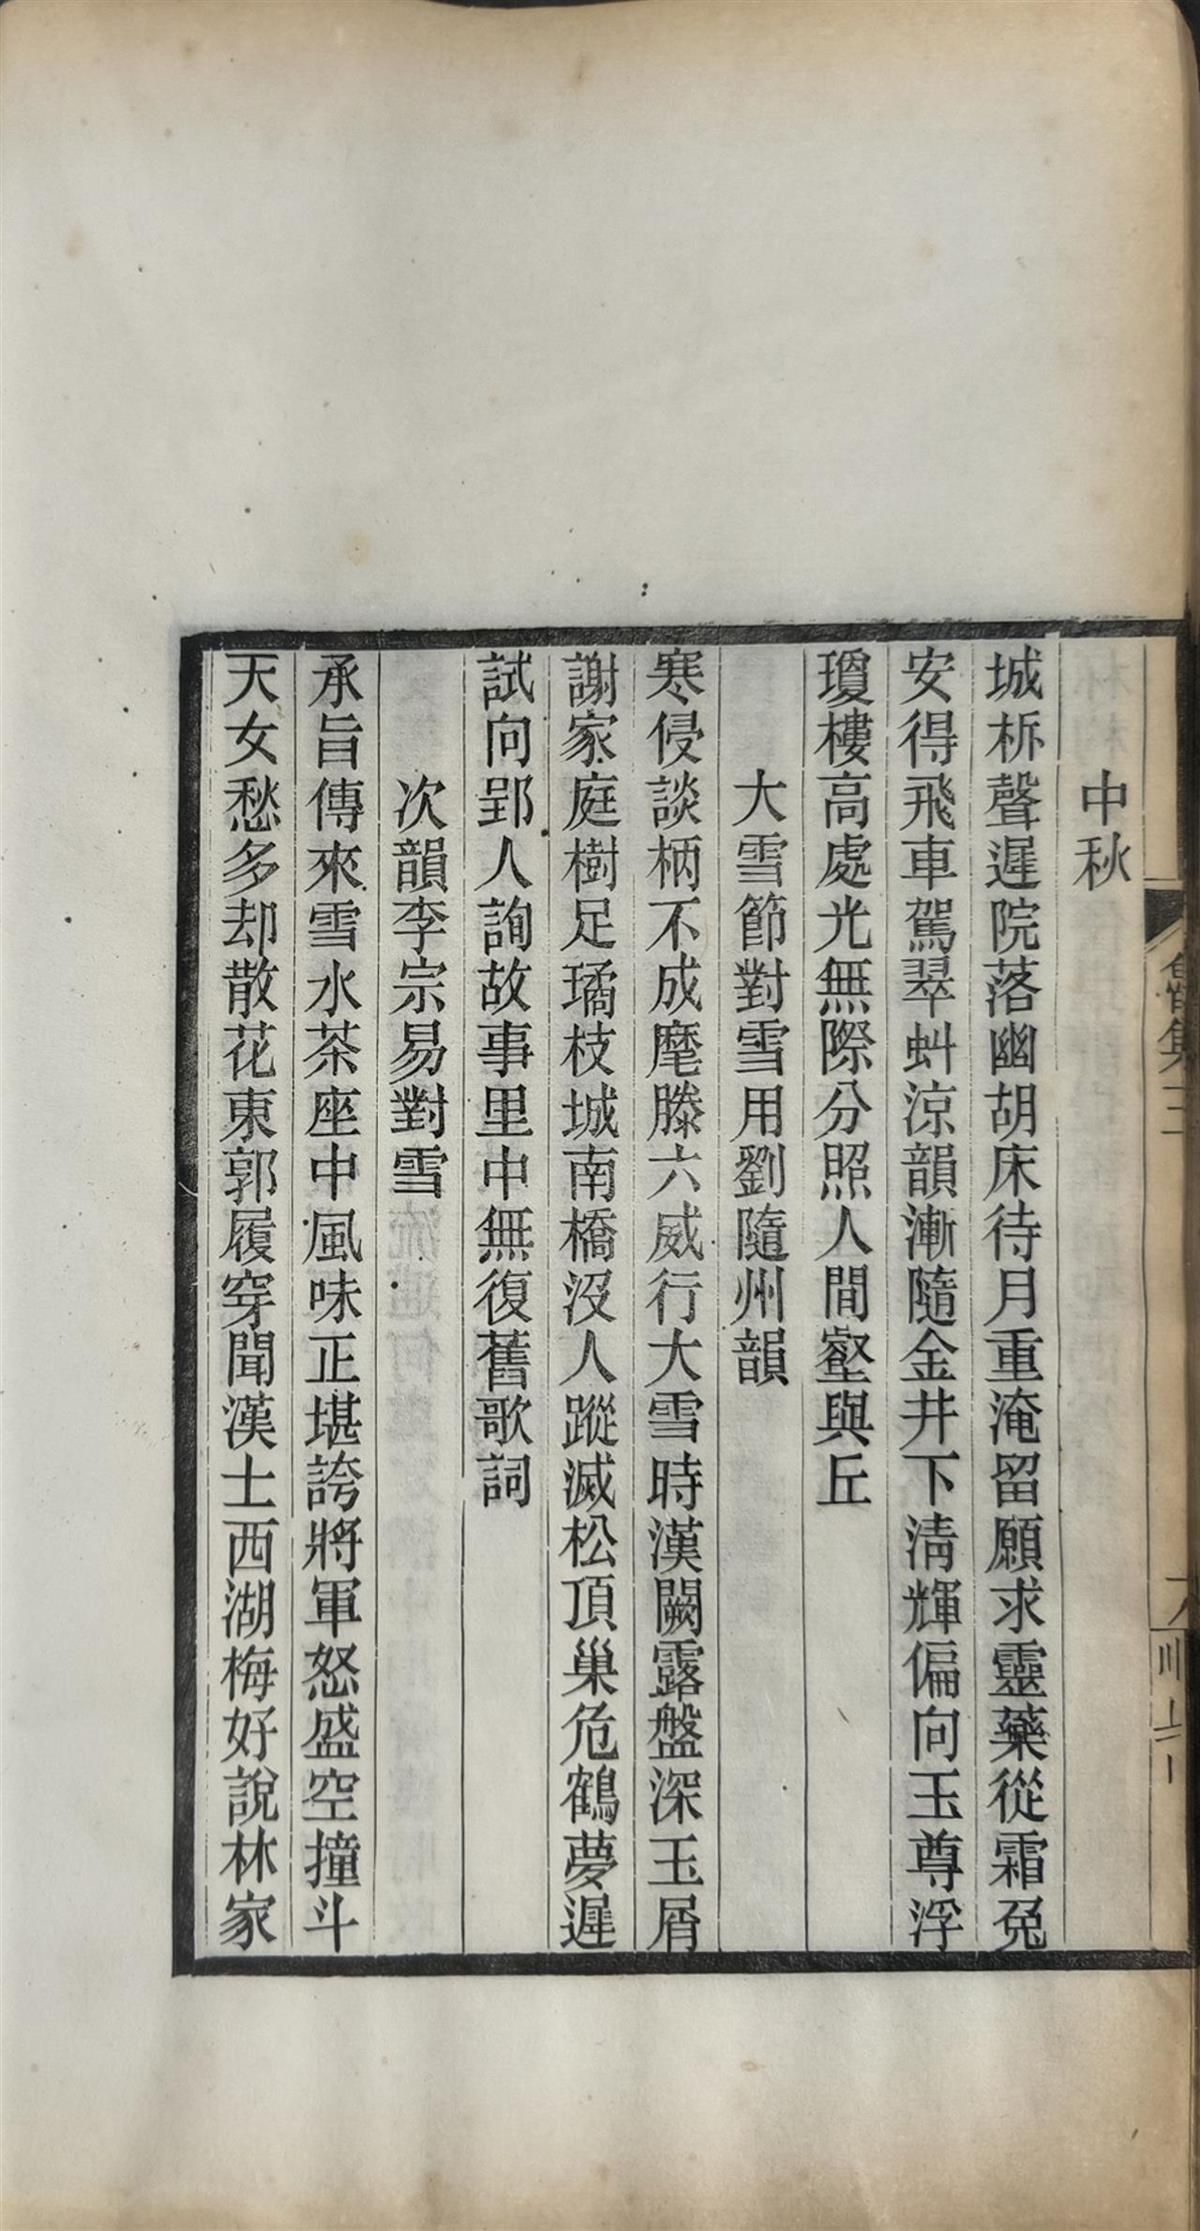 中秋
城柝聲遲院落幽胡床待月重淹留願求靈藥從霜兔
安得飛車駕翠虯涼韻漸隨金井下清輝偏向玉尊浮
瓊樓高處光無際分照人間壑與丘
大雪節對雪用劉隨州韻
寒侵談柄不成麾滕六威行大雪時漢闕露盤深玉屑
謝家庭樹足璚枝城南橋沒人蹤滅松頂巢危鶴夢遲
試向郢人詢故事里中無復舊歌詞
次韻李宗易對雪
承旨傳來雪水茶座中風味正堪誇將軍怒盛空撞斗
天女愁多却散花東郭履穿聞漢士西湖梅好說林家